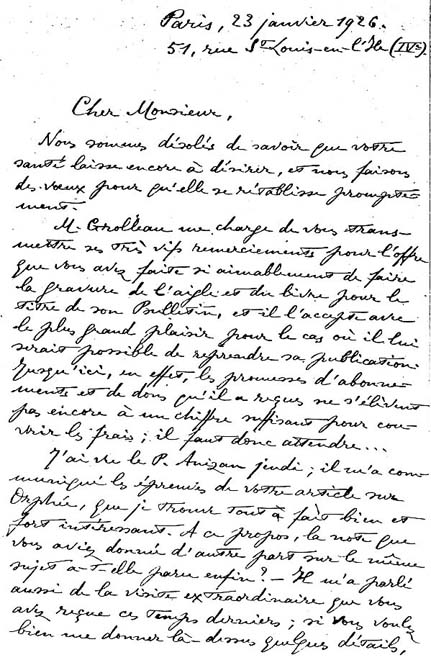 Paris, 23 janvier 1926.
51, rue St Louis-en-l'Ile (IVe)
Cher Monsieur,
Nous sommes désolés de savoir que votre
santé laisse encore à désirer, et nous faisons
des vœux pour qu'elle se rétablisse prompte-
ment.
M. me charge de vous trans-
mettre ses très vifs remerciements pour l'offre
que vous avez faite si aimablement de faire
la gravure de l'aigle et du livre pour le
titre de son Bulletin, et il l'accepte avec
le plus grand plaisir pour le cas où il lui
serait possible de reprendre sa publication.
Jusqu'ici, en effet, les promesses d'abonne-
ments et de dons qu'il a reçues ne s'élèvent
pas encore à un chiffre suffisant pour cou-
vrir les frais ; il faut donc attendre...
J'ai vu le P. Anizan jeudi ; il m'a com-
muniqué les épreuves de votre article sur
Orphée, que je trouve tout à fait bien et
fort intéressant. A ce propos, la note que
vous aviez donnée d'autre part sur le même
sujet a-t-elle paru enfin ? – Il m'a parlé
aussi de la visite extraordinaire que vous
avez reçue ces temps derniers ; si vous voulez
bien me donner là-dessus quelques détails,